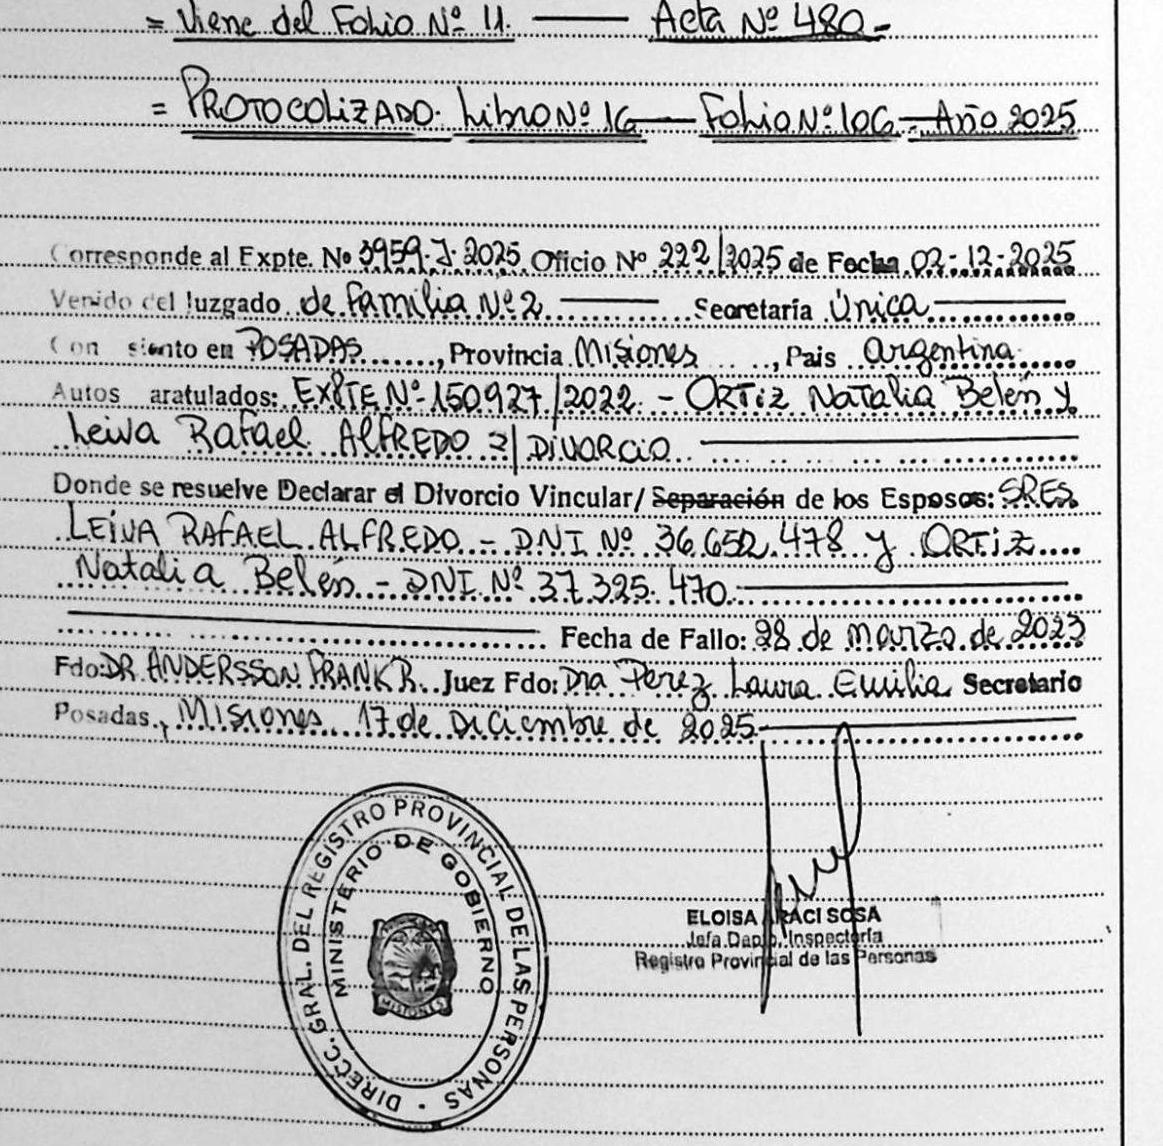 = Viene del Folio Nº 11. — Acta Nº 480 -
= PROTOCOLIZADO. Libro Nº 16 — Folio Nº 106 - Año 2025
Corresponde al Expte. Nº 3959-J-2025 Oficio Nº 222/2025 de Fecha 02-12-2025
Venido del Juzgado de familia Nº 2 Secretaría Única
Con siento en POSADAS, Provincia Misiones, Pais Argentina
Autos aratulados: EXPTE Nº 150927/2022 - ORTIZ Natalia Belén y
Leiva Rafael ALFREDO S/ DIVORCIO
Donde se resuelve Declarar el Divorcio Vincular/ Separación de los Esposos: SRES.
LEIVA RAFAEL ALFREDO - DNI Nº 36.652.478 y ORTIZ
Natalia Belén - DNI Nº 37.325.470
Fecha de Fallo: 28 de marzo de 2023
Fdo: DR ANDERSSON FRANK R. Juez Fdo: Dra Perez Laura Emilia Secretario
Posadas, Misiones 17 de Diciembre de 2025
DIRECC. GRAL. DEL REGISTRO PROVINCIAL DE LAS PERSONAS
MINISTERIO DE GOBIERNO
MISIONES
ELOISA ARACI SOSA
Jefa Dapto. Inspectoría
Registro Provincial de las Personas